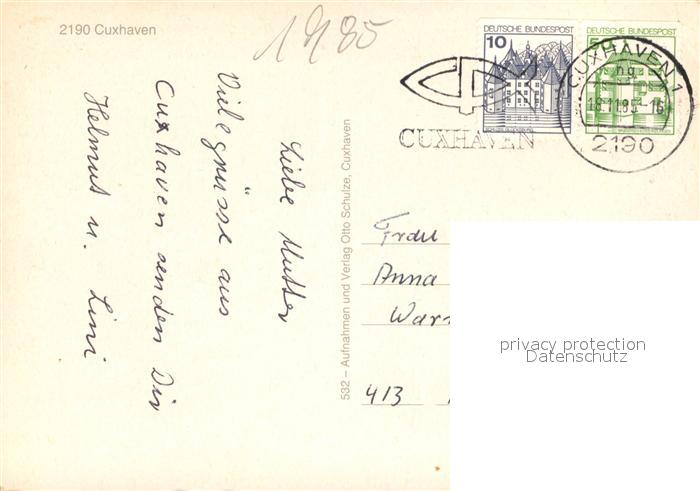 2190 Cuxhaven
1985
Liebe Mutter
Viele grüsse aus
Cuxhaven senden Dir
Helmut u. Lini
532 – Aufnahmen und Verlag Otto Schulze, Cuxhaven
DEUTSCHE BUNDESPOST
10
DEUTSCHE BUNDESPOST
50
CUXHAVEN
CUXHAVEN 1
ng
18.11.85-16
2190
Frau
Anna
War
413
privacy protection
Datenschutz